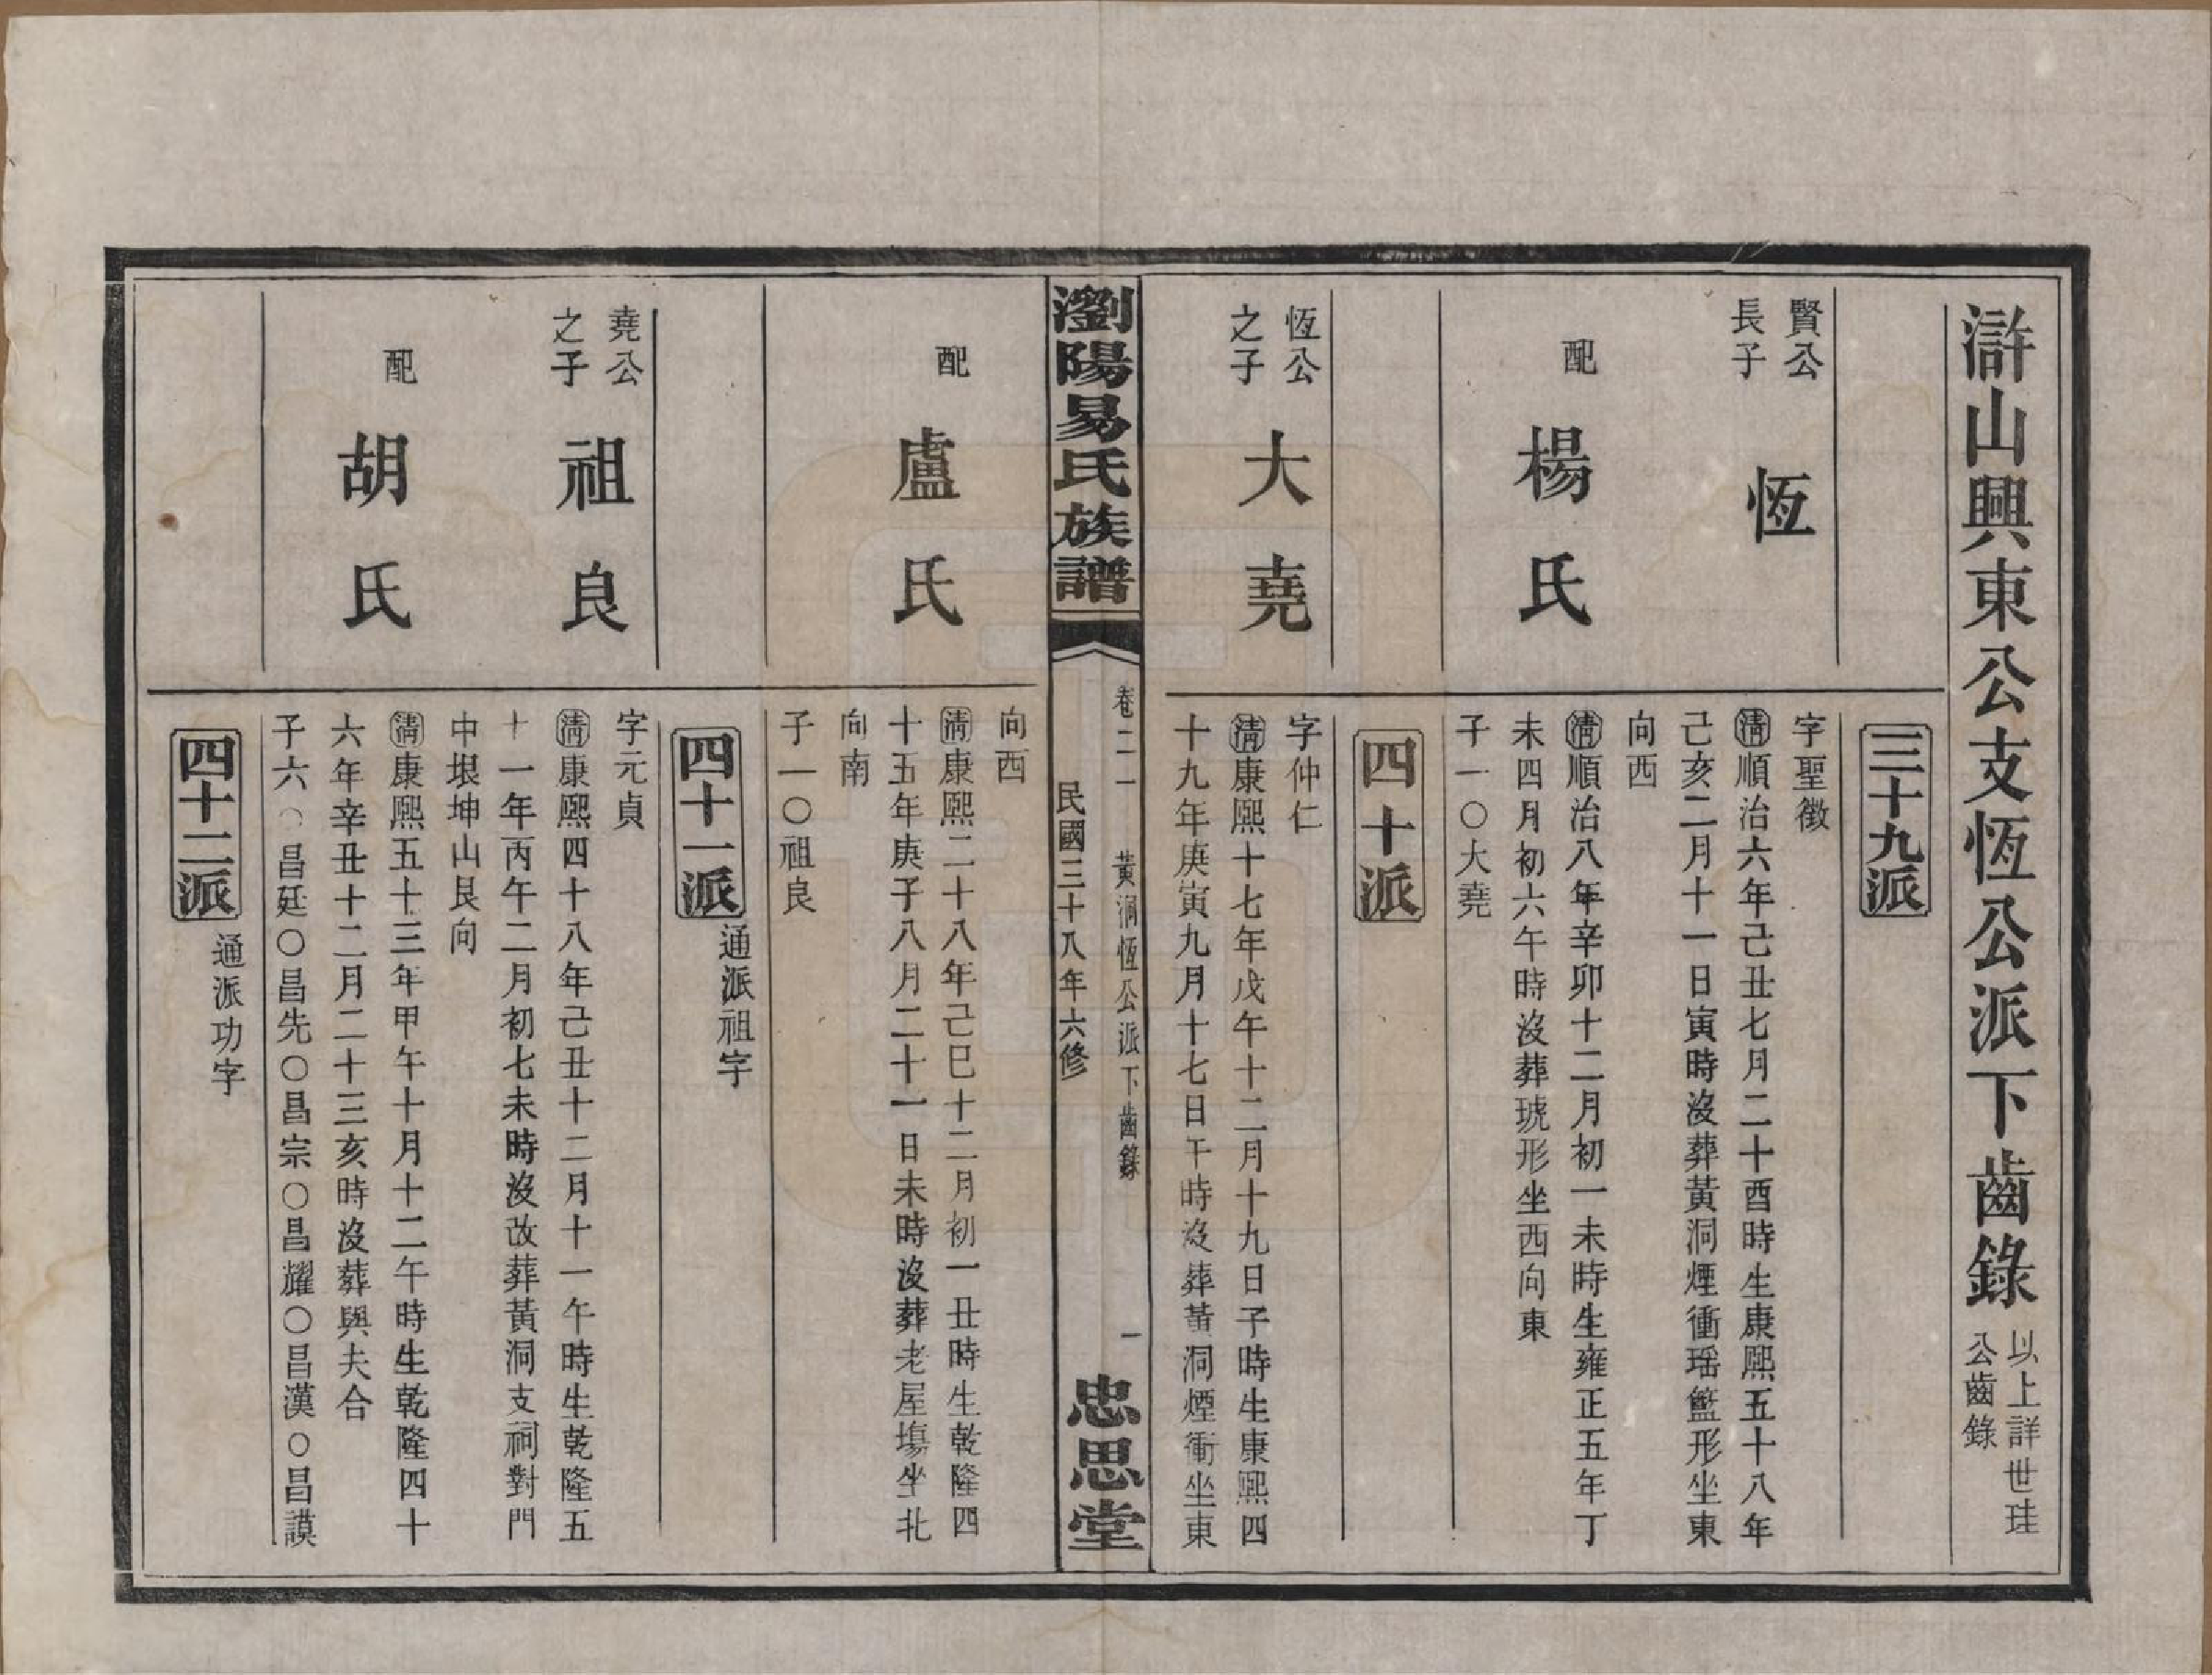 滸山興東公支恆公派下齒錄
以上詳世珪
公齒錄
三十九派
賢公
長子
恆
字聖徵
清順治六年己丑七月二十酉時生康熙五十八年
己亥二月十一日寅時沒葬黃洞煙衝瑶籃形坐東
向西
配
楊氏
清順治八年辛卯十二月初一未時生雍正五年丁
未四月初六午時沒葬琥形坐西向東
子一〇大堯
四十派
恆公
之子
大堯
字仲仁
清康熙十七年戊午十二月十九日子時生康熙四
十九年庚寅九月十七日午時沒葬黃洞煙衝坐東
瀏陽易氏族譜
卷二一
黃洞恆公派下齒錄
一
民國三十八年六修
忠思堂
向西
配
盧氏
清康熙二十八年己巳十二月初一丑時生乾隆四
十五年庚子八月二十一日未時沒葬老屋塲坐北
向南
子一〇祖良
四十一派
通派祖字
堯公
之子
祖良
字元貞
清康熙四十八年己丑十二月十一午時生乾隆五
十一年丙午二月初七未時沒改葬黃洞支祠對門
中垠坤山艮向
配
胡氏
清康熙五十三年甲午十月十二午時生乾隆四十
六年辛丑十二月二十三亥時沒葬與夫合
子六〇昌廷〇昌先〇昌宗〇昌耀〇昌漢〇昌謨
四十二派
通派功字